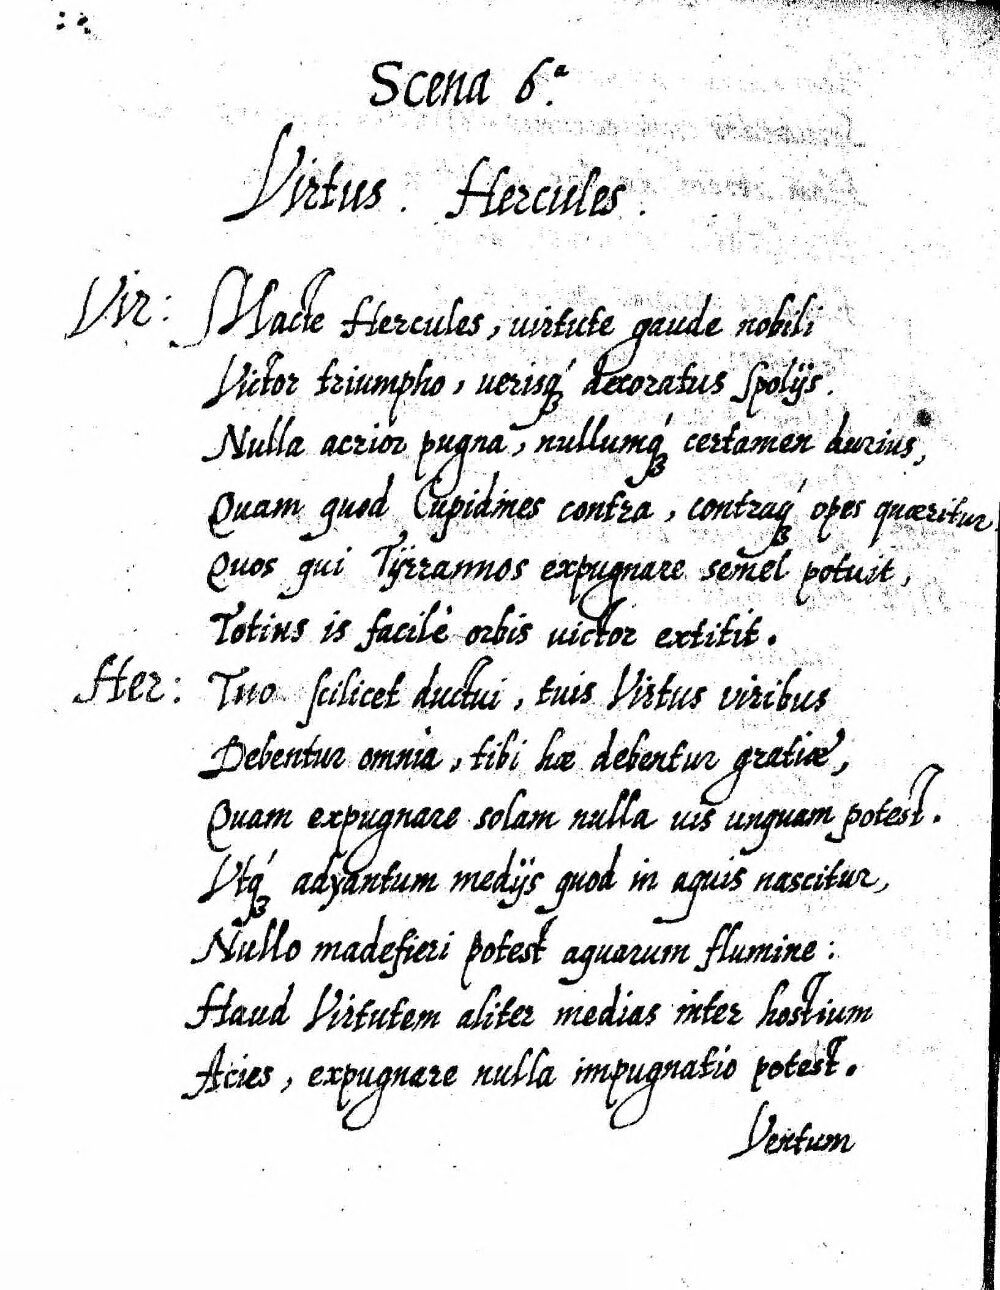 Scena 6.ª
Virtus. Hercules.
Vir: Macte Hercules, uirtute gaude nobili
Victor triumpho, uerisq́ꝫ decoratus spolijs.
Nulla acrior pugna, nullumq́ꝫ certamen durius,
Quam quod Cupidines contra, contraq́ꝫ opes quæritur
Quos qui Tÿrrannos expugnare semel potuit,
Totius is facilè orbis uictor extitit.
Her: Tuo scilicet ductui, tuis Virtus viribus
Debentur omnia, tibi hæ debentur gratiæ,
Quam expugnare solam nulla uis unquam potest.
Vtq́ꝫ adyantum medijs quod in aquis nascitur,
Nullo madefieri potest aquarum flumine:
Haud Virtutem aliter medias inter hostium
Acies, expugnare nulla impugnatio potest.
Ventum